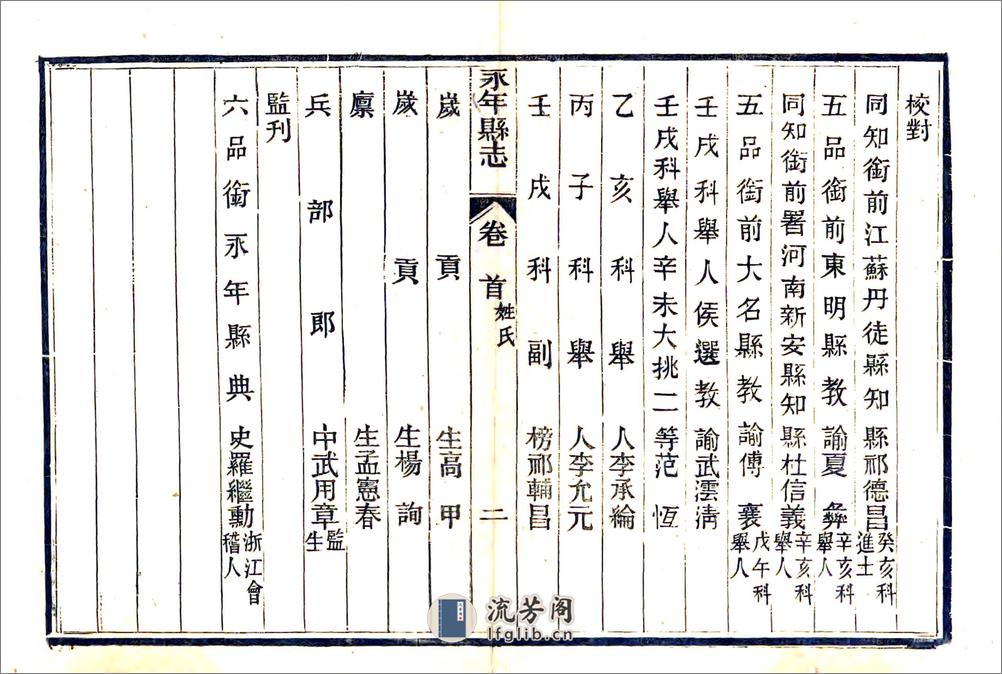 校對
同知銜前江蘇丹徒縣知縣祁德昌癸亥科進士
五品銜前東明縣教諭夏彝辛亥科舉人
同知銜前署河南新安縣知縣杜信義辛亥科舉人
五品銜前大名縣教諭傅襄戊午科舉人
壬戌科舉人侯選教諭武澐淸
壬戌科舉人辛未大挑二等范恆
乙亥科舉人李承綸
丙子科舉人李允元
壬戌科副榜祁輔昌
永年縣志
卷首姓氏
二
歲貢生高甲
歲貢生楊詢
廩生孟憲春
兵部郎中武用章監生
監刊
六品銜永年縣典史羅繼勳浙江會稽人
流芳阁
lfglib.cn